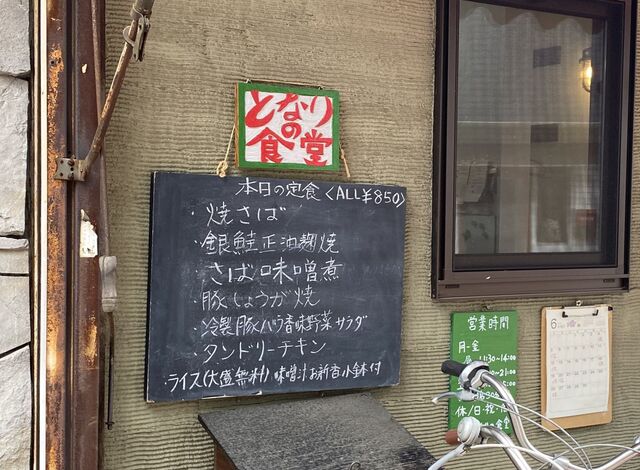 となりの
食堂
本日の定食〈ALL¥850〉
・焼さば
・銀鮭正油麹焼
・さば味噌煮
・豚しょうが焼
・冷製豚バラ香味野菜サラダ
・タンドリーチキン
・ライス(大盛無料) 味噌汁 お新香 小鉢付
営業時間
月-金
11:30~14:00
21:00
休/日・祝・
食堂
6